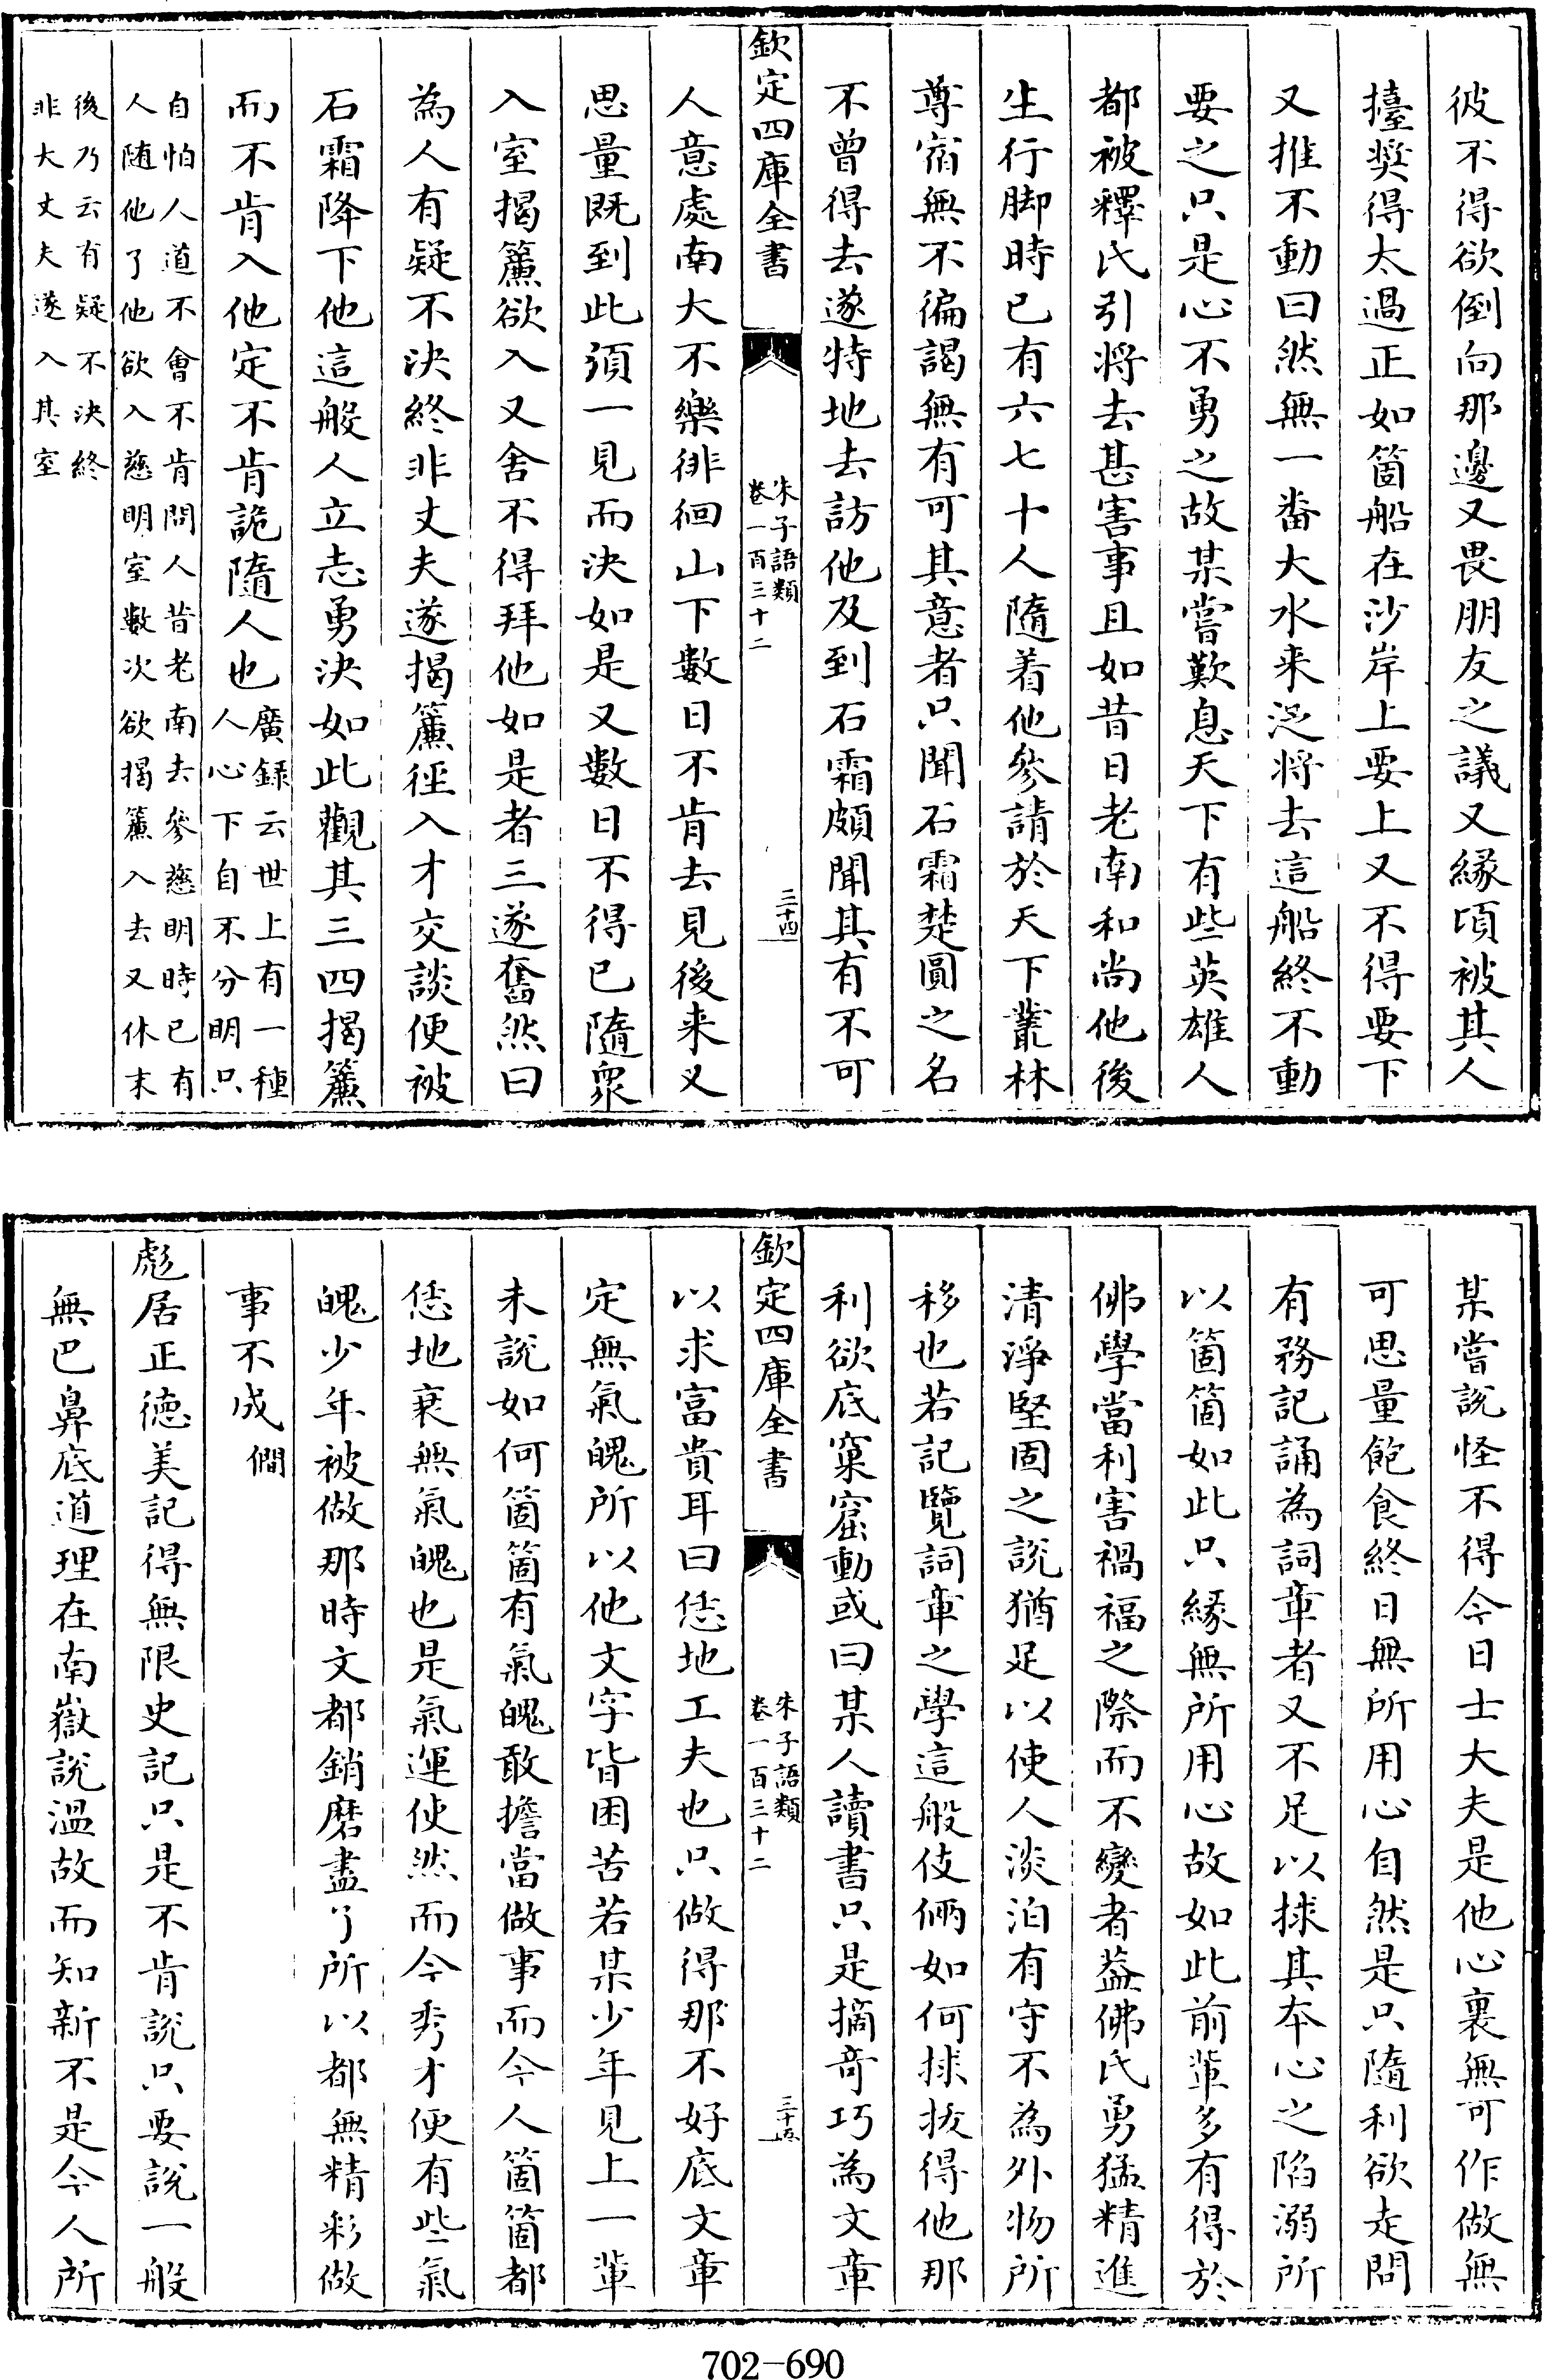 彼不得欲倒向那邊又畏朋友之議又緣頃被其人
擡奬得太過正如箇船在沙岸上要上又不得要下
又推不動曰然無一番大水来泛將去這船終不動
要之只是心不勇之故某嘗歎息天下有些英雄人
都被釋氏引將去甚害事且如昔日老南和尚他後
生行脚時已有六七十人隨着他參請於天下叢林
尊宿無不徧謁無有可其意者只聞石霜楚圓之名
不曾得去遂特地去訪他及到石霜頗聞其有不可
欽定四庫全書
朱子語類
卷一百三十二
三十四
人意處南大不樂徘徊山下數日不肯去見後来又
思量既到此須一見而決如是又數日不得已隨衆
入室揭簾欲入又舍不得拜他如是者三遂奮然曰
為人有疑不決終非丈夫遂揭簾徑入才交談便被
石霜降下他這般人立志勇決如此觀其三四揭簾
而不肯入他定不肯詭隨人也
廣録云世上有一種
人心下自不分明只
自怕人道不會不肯問人昔老南去參慈明時已有
人随他了他欲入慈明室數次欲揭簾入去又休末
後乃云有疑不決終
非大丈夫遂入其室
某嘗說怪不得今日士大夫是他心裏無可作做無
可思量飽食終日無所用心自然是只隨利欲走問
有務記誦為詞章者又不足以捄其本心之陷溺所
以箇箇如此只緣無所用心故如此前輩多有得於
佛學當利害禍福之際而不變者蓋佛氏勇猛精進
清淨堅固之說猶足以使人淡泊有守不為外物所
移也若記覽詞章之學這般伎倆如何捄拔得他那
利欲底窠窟動或曰某人讀書只是摘奇巧為文章
欽定四庫全書
朱子語類
卷一百三十二
三十五
以求富貴耳曰恁地工夫也只做得那不好底文章
定無氣魄所以他文字皆困苦若某少年見上一輩
未說如何箇箇有氣魄敢擔當做事而今人箇箇都
恁地衰無氣魄也是氣運使然而今秀才便有些氣
魄少年被做那時文都銷磨盡了所以都無精彩做
事不成
僩
彪居正德美記得無限史記只是不肯說只要說一般
無巴鼻底道理在南嶽說溫故而知新不是今人所
702-690